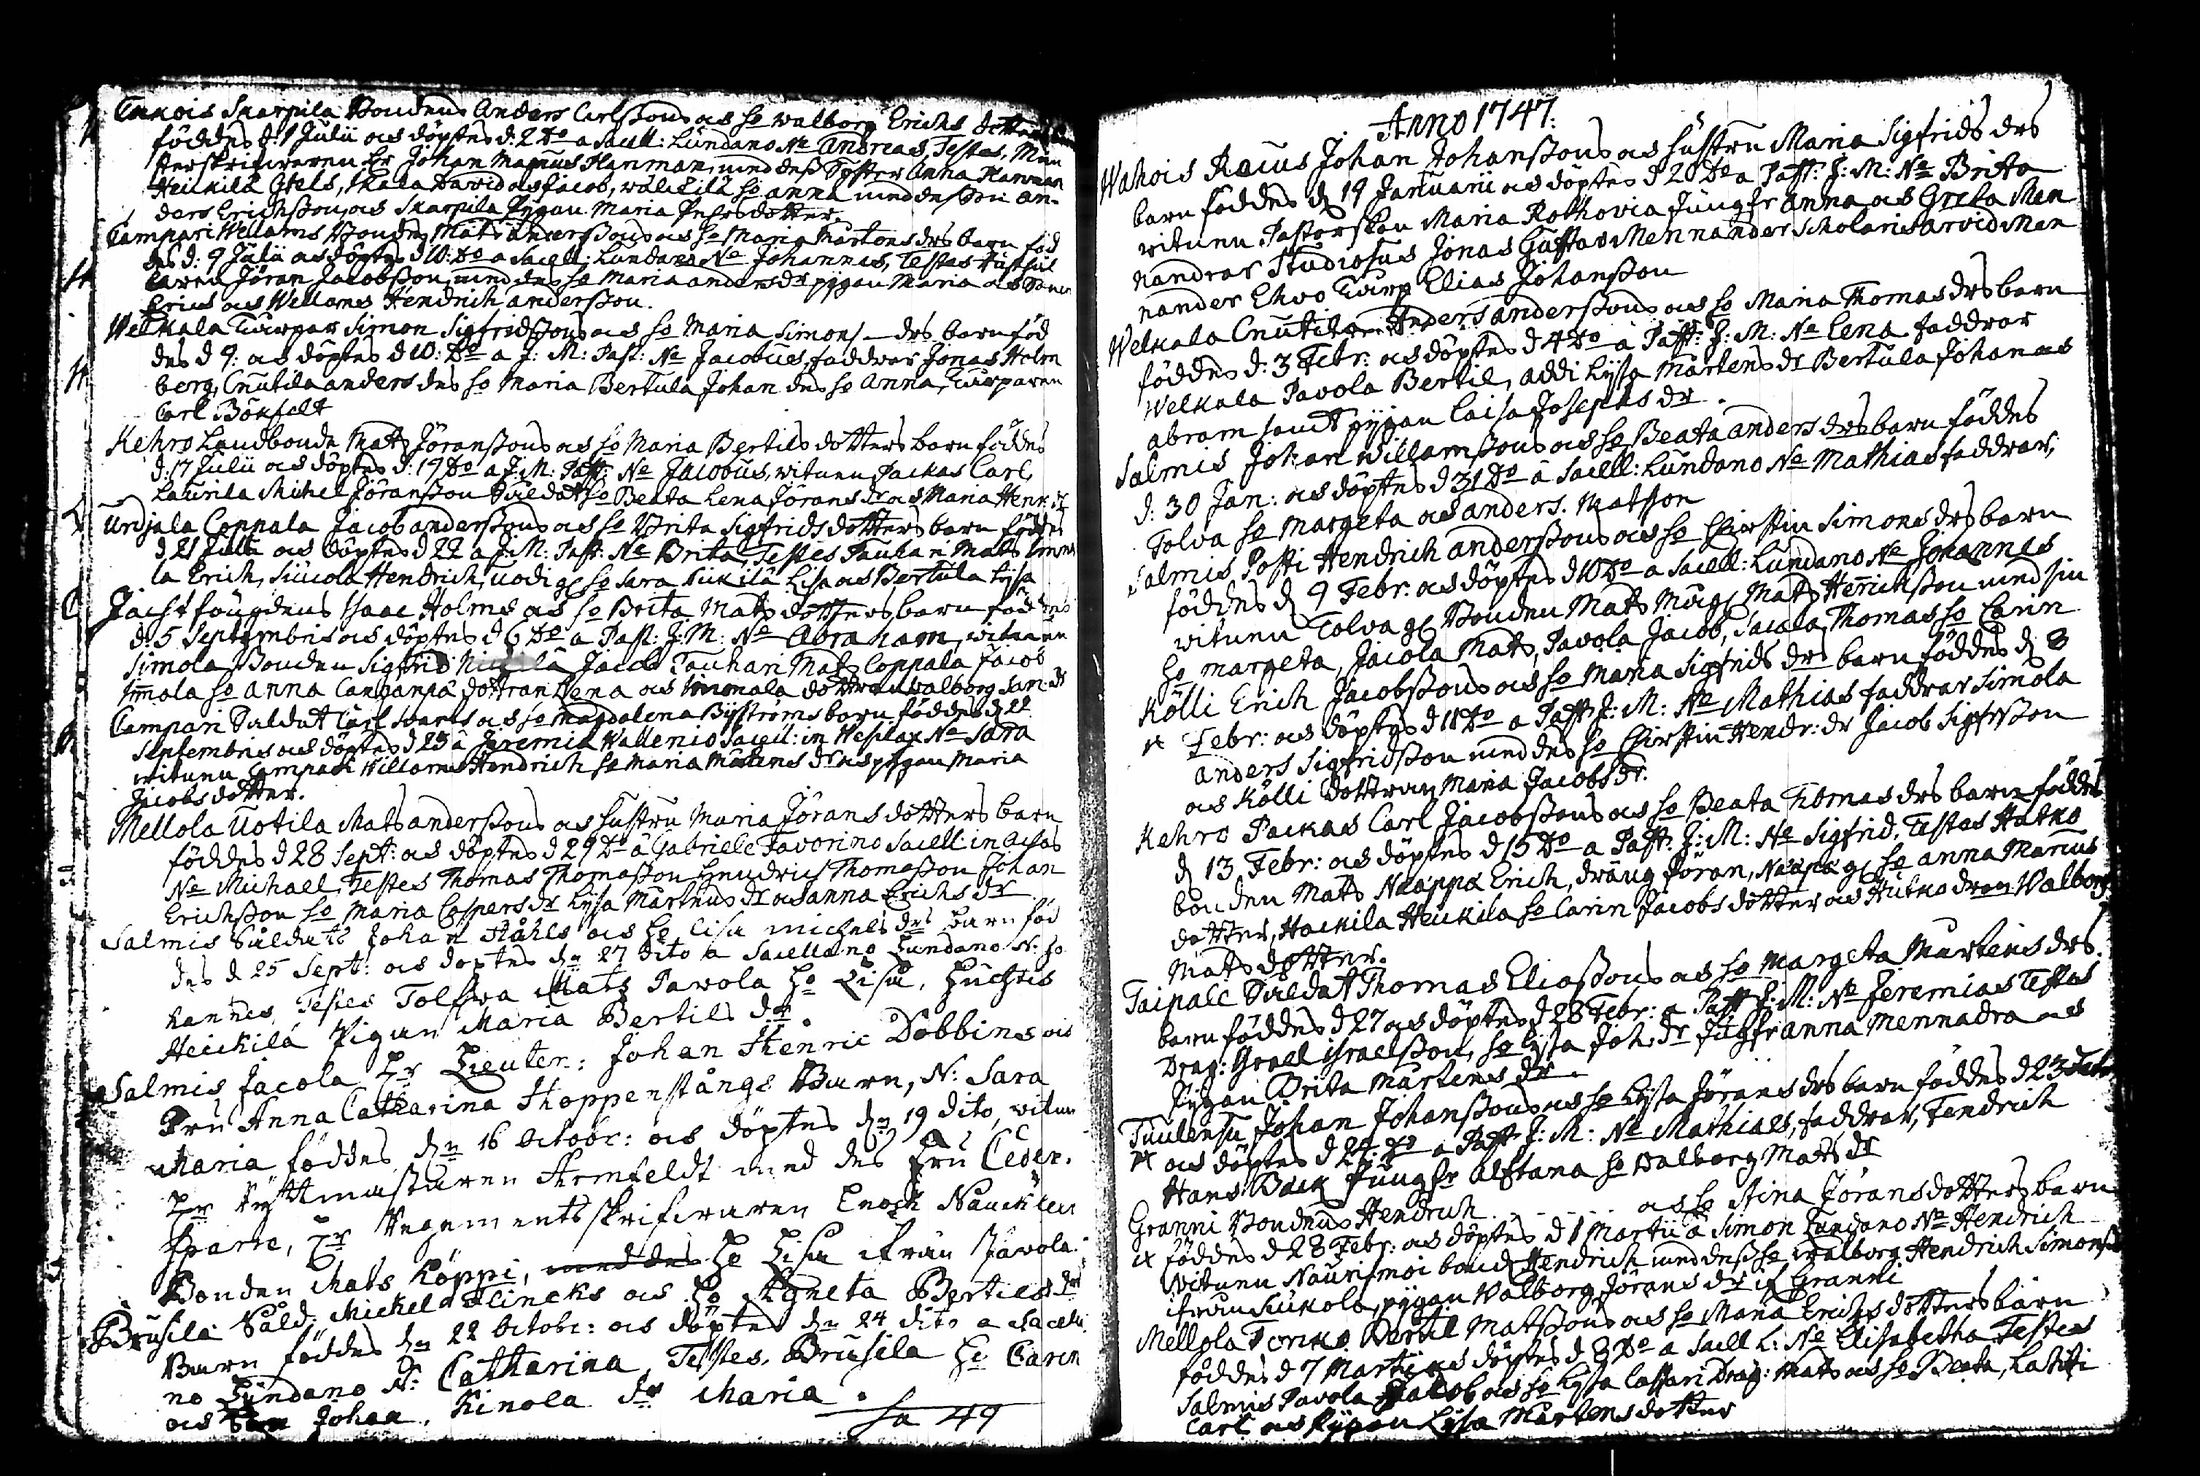 Skarpila Bondens Anders Carlssons och ho walborg Erichs dotters
föddes d: 1 Julii och döptes d: 2 Do a Sacell: Lundano No Andreas, Testes, Mön
sterskrifwaren Hr Johan Magnus Hanman, med dess Syster Anna Hanman
Heickilä David och Jacob, ho anna med dess Son An-
ders Erichsson, och Skarpila Pygan Maria Pehrsdotter
Campari Wellams Bondes Mats anderssons och ho Maria Mårtens drs barn föd
des d: 9 Julii och döptes d 10: Do a Sacell: Lundano No Johannes, Testes
Jöran Jacobsson, med des ho Maria anders dr pygan Maria och Sonen
Erich och Wellams Hendrich andersson.
Welkala Simon Sigfridssons och ho Maria Simons drs barn föd
des d 9: och döptes d 10: Do a J: M: Past: No Jacobus, faddrar Jonas Holm
berg, Cnutila anders des ho Maria Bertula Johan des ho Anna,
Carl Bökfelt
Kehro Landbonde Mats Jöranssons och ho Maria Bertils dotters barn föddes
d: 17 Julii och döptes d: 19 Do a J: M: Past: No Jacobus, witnen Packas Carl,
Laurila Michel Jöransson ho Beata Lena Jörans dr och Maria Henr: dr
Urdjala Coppala Jacob anderssons och ho Brita Sigfrids dotters barn föddes
d 21 Julii och döptes d 22 a J: M: Past: No Brita, Testes Tauhan Mats
la Erich, Siucola Hendrich, ho Sara Lisa och Bertula Lysa
Jachtfougdens Isaac Holms och ho Brita Mats dotters barn föddes
d: 5 Septembris och döptes d 6 Do a Past: J: M: No Abraham, witnen
Simola Bonden Sigfrid Jacob Tauhari Mats Coppala Jacob
ho Anna Campanpä dottran Lena och dottran Walborg
Campari Soldat Carl Swarts och ho Magdalena Byströms barn föddes d 22
Septembris och döptes d 25 a Jeremia Wallenio Sacell: in Wesilax No Sara
witnen Campari Willams Hendrich ho Maria Mårtens dr och pygan Maria
Jacobs dotter.
Mellola Uotila Mats anderssons och hustru Maria Jörans dotters barn
föddes d 28 Sept: och döptes d 29 Do a Gabriele Favorino Sacell: in Ackas
No Michael, Testes Thomas Thomasson Hendrich Thomasson Johan
Erichsson ho Maria Caspers dr Lysa Mårtens dr och anna Erichs dr
Salmis Soldats Johan Ståhls och ho Lisa Michels drs barn föd
des d 25 Sept: och döptes dn 27 dito a Sacellano Lundano N: Jo
hannes, Testes Tolfwa Mats Pavola ho Lisa, Huchtis
Heickilä Pigan Maria Bertils dr.
Salmis Jacola Hr Lieuten: Johan Henric Dobbins och
Fru Anna Catharina Stoppenstångs Barn, N: Sara
Maria föddes dn 16 Octobr: och döptes dn 19 dito, witnen
Hr Ryttmästaren Armfeldt med des Fru Ceder-
sparre, Hr Regementsskrifwaren Enoch Nauckler
Bonden MatsKöppi, med des ho Lisa ifrån Pavola
Brusila Sold: Mickel Flincks och ho Agneta Bertils dr
Barn föddes dn 22 Octobr: och döptes dn 24 dito a Sacella
no Lundano N: Catharina, Testes, Brusila ho Carin
och Johan, Kinola dr Maria.
Sa 49
Anno 1747:
Wahois Johan Johanssons och hustru Maria Sigfrids drs
barn föddes d 19 Januarii och döptes d 20 Do a Past: J: M: No Brita
witnen Pastorskan Maria Rothovia Jungfr anna och Greta Men
nandrar Studiosus Jonas Gustav Mennander Scholaris arvid Men
nander Ehvo Elias Johansson
Welkala Cnutila Anders anderssons och ho Maria Thomas drs barn
föddes d: 3 Febr: och döptes d 4 Do a Past: J: M: No Lena faddrar
Welkala Pavola Bertil, addi Lysa Mårtens dr Bertula Johan och
abram samt pygan Caisa Josephs dr.
Salmis Johan Willamssons och ho Beata anders drs barn föddes
d: 30 Jan: och döptes d 31 Do a Sacell: Lundano No Mathias faddrar,
Tolva ho Margeta och anders. Matsson
Salmis Posti Hendrich anderssons och ho Christin Simons drs barn
föddes d 9 Febr: och döptes d 10 Do a Sacell: Lundano No Johannes
witnen Tolva Bonden Mats Mats Henrichsson med sin
ho Margeta, Jacola Mats, Pavola Jacob, Jacola Thomas ho Carin
Kölli Erich Jacobssons och ho Maria Sigfrids drs barn föddes d 8
Febr: och döptes d 11 Do a Past: J: M: No Mathias faddrar Simola
anders Sigfridsson med des ho Christin Hendr: dr Jacob Sigfrsson
och Kölli dottran Maria Jacobs dr.
Kehro Packas Carl Jacobssons och ho Beata Thomas drs barn föddes
d 13 Febr: och döptes d 15 Do a Past: J: M: No Sigfrid. Testes Hutko
bonden Mats Naappa Erich, dräng Jöran, Naapa ho anna Marcus
dotter, Hackila Heickila ho Carin Jacobs dotter och Hutko dran Walborg
Mats dotter.
Taipale Soldat Thomas Eliassons och ho Margeta Mårtens drs
barn föddes d 27 och döptes d 28 Febr: a Past J: M: No Jeremias Testes
Drag: Israelsson, ho Lysa Joh: dr Jugfr anna Mennadra och
Pygan Brita Mårtens dr.
Tuulensu Johan Johanssons och ho Lysa Jörans drs barn föddes d 23 Febr
och döptes d 24: Do a Past J: M: No Mathias, faddrar, Fendrich
Hans Back Jungfr Alftana ho Walborg Mats dr
Granni Bondens Hendrich - - - - och ho Stina Jörans dotters barn
föddes d 28 Febr: och döptes d 1 Martii a Simon Lundano No Hendrich
witnen Naurismoi bond Hendrich med dess ho Walborg Hendrich Simonss
ifrån Siukola, pygan Walborg Jörans dr if Granni
Mellola Tonko Bertil Matssons och ho Maria Erichs dotters barn
föddes d 7 Martii och döptes d 8 Do a Sacell L: No Elisabetha Testes
Salmis Pavola Jacob och ho Lysa Cassari Drag: Mats och ho Beata, Latiti
Carl och Pygan Lysa Mårtens dotter